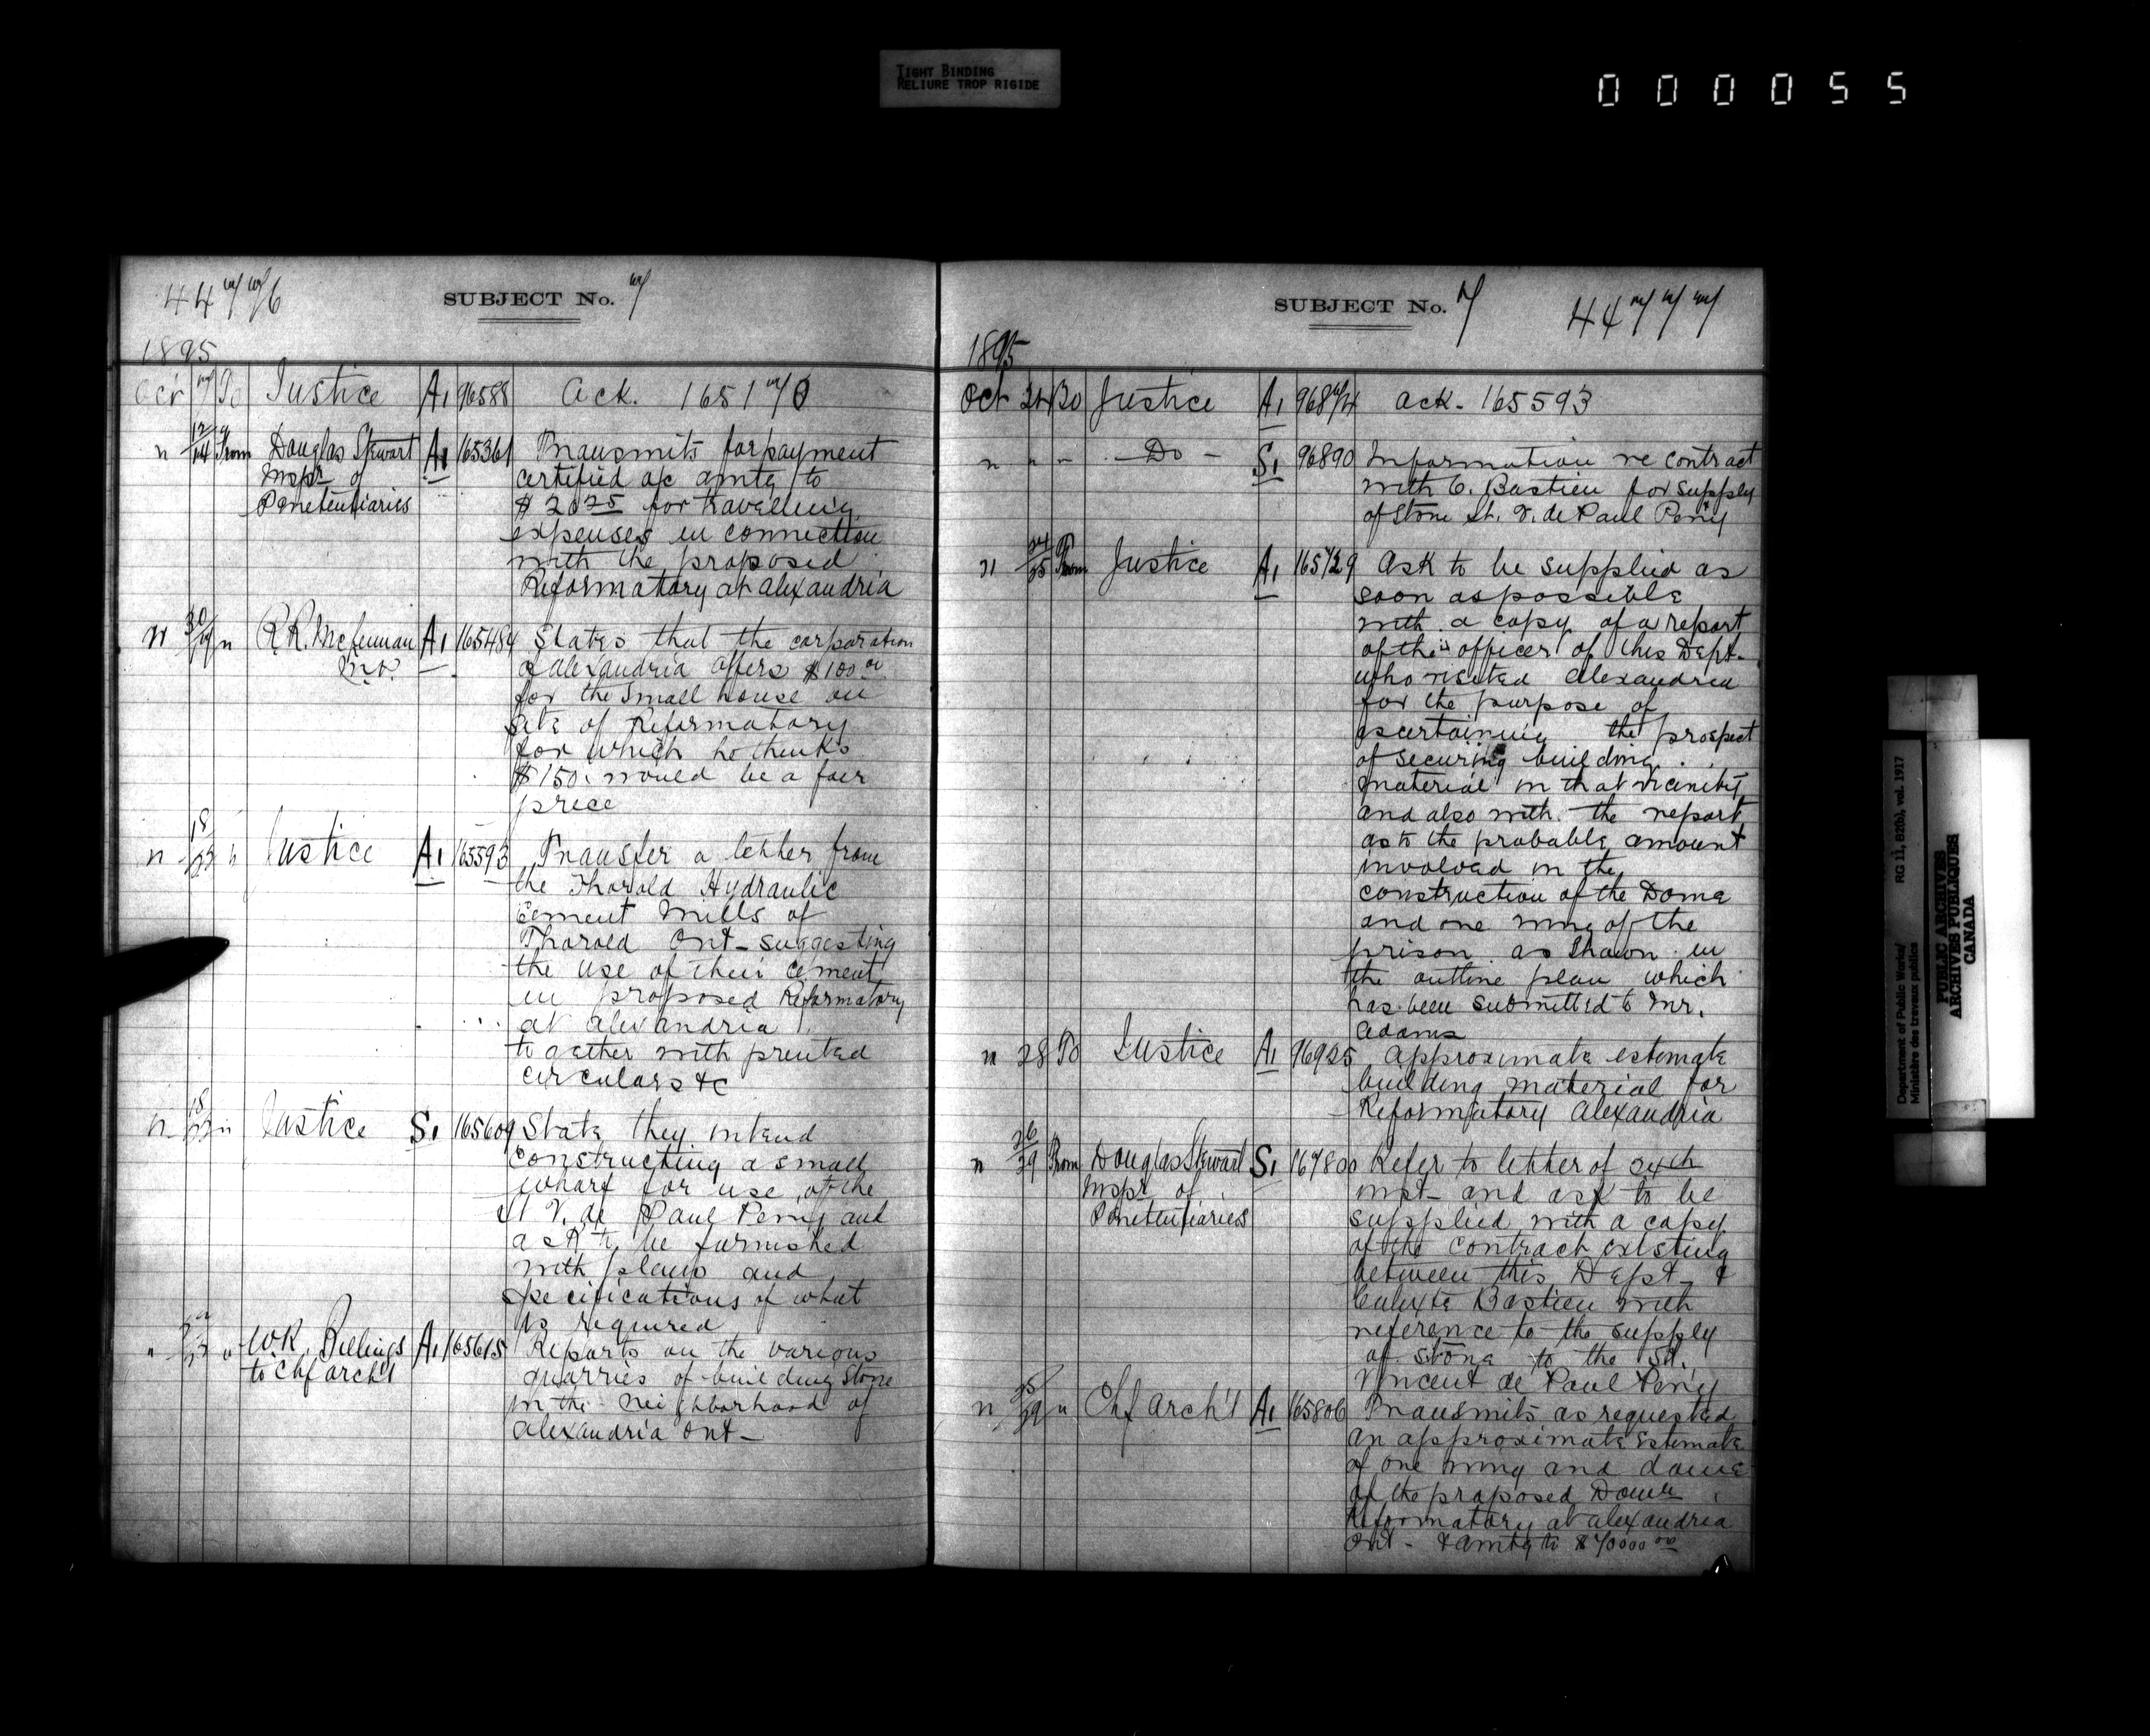 TIGHT BINDING
RELIURE TROP RIGIDE
000055
44776
SUBJECT No. 7
1895
Oct 7 To Justice A1 96588 Ack. 165170
" 12/14 From Douglas Stewart A1 165361 Transmits for payment
Inspr of certified a/c amtg to
Penetentiaries $20 75 for travelling
expenses in connection
with the proposed
Reformatory at Alexandria
" /19 " R.R. McLennan A1 165484 States that the corporation
M.P. of Alexandria offers $100 00
for the small house on
site of Reformatory
for which he thinks
$150. would be a fair
price
" 18/23 " Justice A1 165593 Transfer a letter from
the Thorold Hydraulic
Cement Mills of
Thorold Ont - suggesting
the use of their cement
in proposed Reformatory
at Alexandria
together with printed
circulars &c
" 18/23 " Justice S1 165609 State they intend
constructing a small
wharf for use of the
St V. de Paul Peny and
ask to be furnished
with plans and
specifications of what
is required
" " W.R. Billings A1 165615 Reports on the various
to Chf Arch't quarries of building stone
in the neighborhood of
Alexandria Ont -
SUBJECT No. 7
44777
1895
Oct 24 To Justice A1 96874 Ack - 165593
" " " - Do - S1 96890 Information re contract
with C. Bastien for supply
of stone St. V. de Paul Peny
" 24/25 From Justice A1 165729 Ask to be supplied as
soon as possible
with a copy of a report
of the officer of this Dept.
who visited Alexandria
for the purpose of
ascertaining the prospect
of securing building
material in that vicinity
and also with the report
as to the probable amount
involved in the
construction of the Dome
and one wing of the
prison as shown in
the outline plan which
has been submitted to Mr.
Adams
" 28 To Justice A1 96925 Approximate estimate
building material for
Reformatory Alexandria
" 26/29 From Douglas Stewart S1 Refer to letter of 24th
Inspr of inst - and ask to be
Penetentiaries supplied with a copy
of the contract existing
between this Dept &
Calixte Bastien with
reference to the supply
of stone to the St.
Vincent de Paul Peny
" /29 " Chf Arch't A1 165806 Transmits as requested
an approximate estimate
of one wing and dome
of the proposed Domn
Reformatory at Alexandria
Ont - & amtg to $70000 00
Department of Public Works/ RG 11, B2(b), vol. 1917
Ministère des travaux publics
PUBLIC ARCHIVES
ARCHIVES PUBLIQUES
CANADA